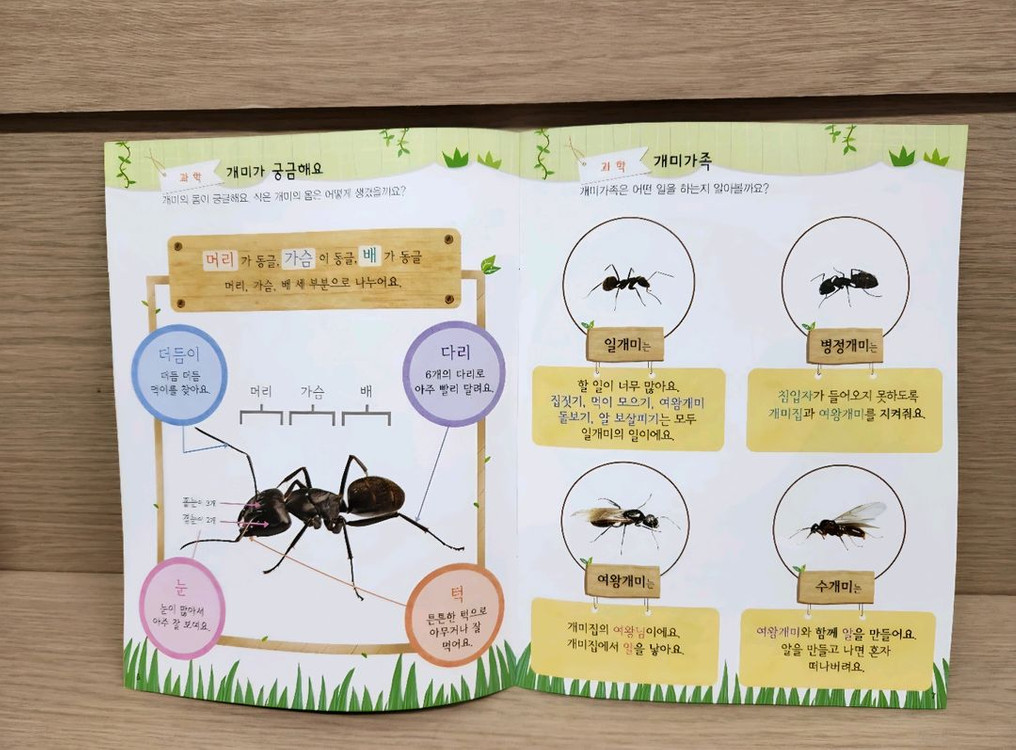 과학
개미가 궁금해요
개미의 몸이 궁금해요. 작은 개미의 몸은 어떻게 생겼을까요?
머리가 동글, 가슴이 동글, 배가 동글
머리, 가슴, 배 세 부분으로 나누어요.
더듬이
더듬 더듬
먹이를 찾아요.
다리
6개의 다리로
아주 빨리 달려요.
머리 가슴 배
홑눈이 3개
겹눈이 2개
눈
눈이 많아서
아주 잘 보여요.
턱
튼튼한 턱으로
아무거나 잘
먹어요.
과학
개미가족
개미가족은 어떤 일을 하는지 알아볼까요?
일개미는
할 일이 너무 많아요.
집짓기, 먹이 모으기, 여왕개미
돌보기, 알 보살피기는 모두
일개미의 일이에요.
병정개미는
침입자가 들어오지 못하도록
개미집과 여왕개미를 지켜줘요.
여왕개미는
개미집의 여왕님이에요.
개미집에서 알을 낳아요.
수개미는
여왕개미와 함께 알을 만들어요.
알을 만들고 나면 혼자
떠나버려요.